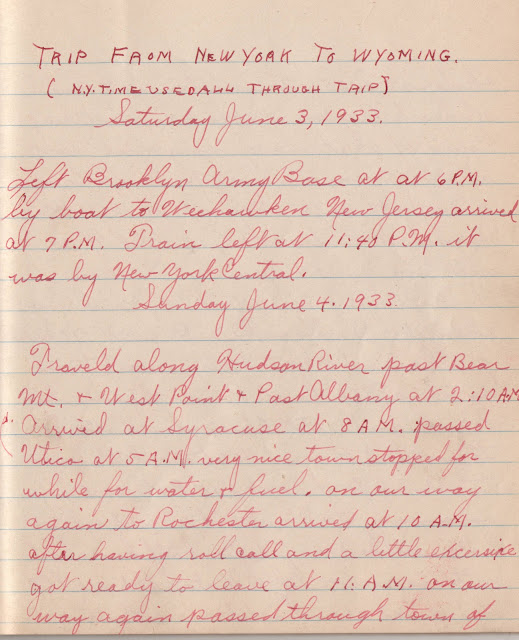 TRIP FROM NEW YORK TO WYOMING.
( N.Y. TIME USED ALL THROUGH TRIP)
Saturday June 3, 1933.
Left Brooklyn Army Base at at 6 P.M.
by boat to Weehawken New Jersey arrived
at 7 P.M. Train left at 11:40 P.M. it
was by New York Central.
Sunday June 4. 1933.
Traveld along Hudson River past Bear
Mt. + West Point + Past Albany at 2:10 A.M
Arrived at Syracuse at 8 A.M. passed
Utica at 5 A.M. very nice town stopped for
while for water + fuel. on our way
again to Rochester arrived at 10 A.M.
after having roll call and a little excersixe
got ready to leave at 11. A.M. on our
way again passed through town of